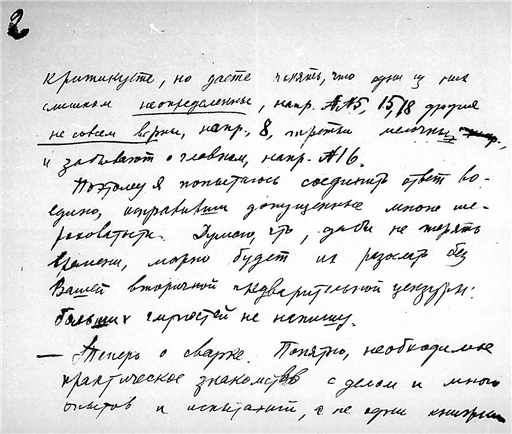 2
критикуете, но даете понять, что одни из них
слишком неопределенны, напр. №№5, 15, 18 другие
не совсем верны, напр. 8, третьи мелочны
и забывают о главном, напр. №16.
Поэтому я попытаюсь соединить ответ во-
едино, исправивши допущенные мною ше-
роховатости. Думаю, что, дабы не терять
времени, можно будет их разослать без
Вашей вторичной предварительной цензуры:
больших глупостей не напишу.
— Теперь о сварке. Понятно, необходимое
практическое знакомство с делом и много
опытов и испытаний, а не одни